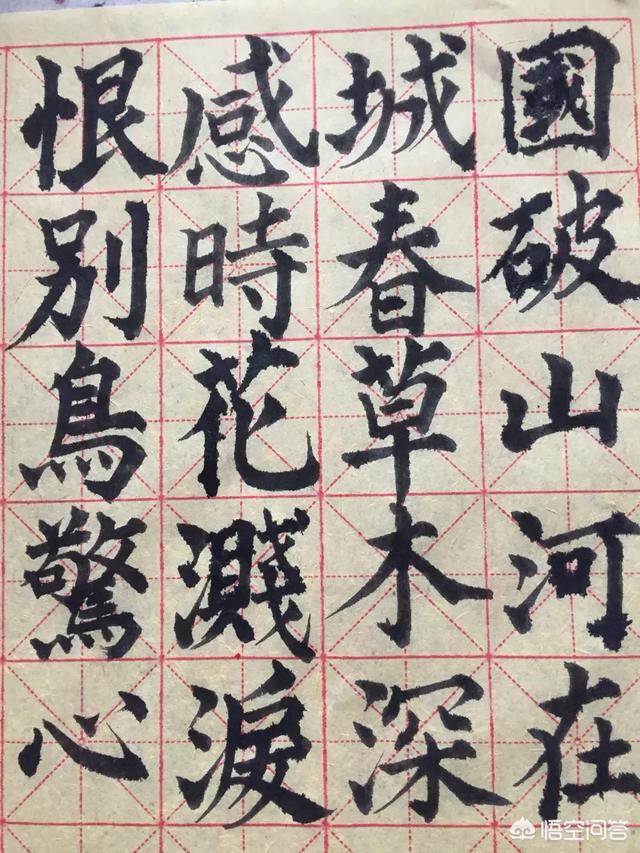 國破山河在
城春草木深
感時花濺淚
恨别鳥驚心
悟空问答